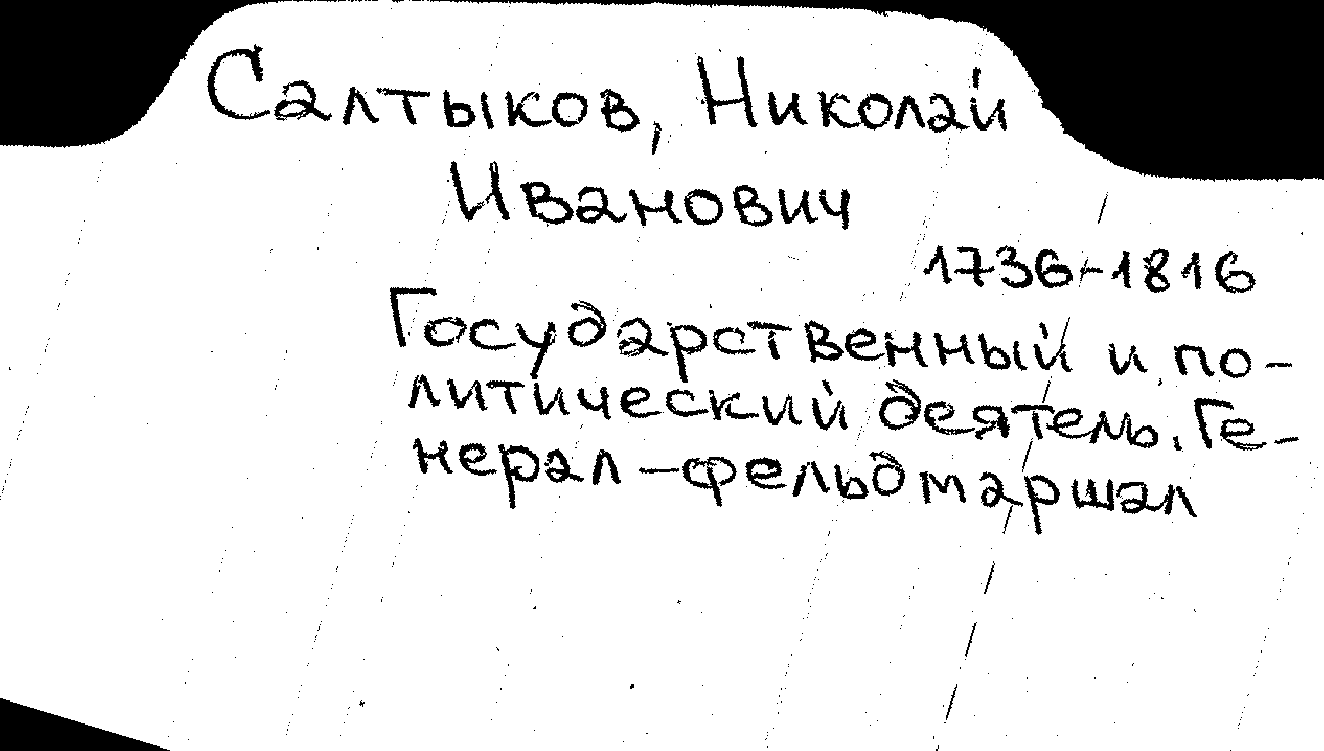 Салтыков, Николай
Иванович
1736-1816
Государственный и по-
литический деятель. Ге-
нерал-фельдмаршал